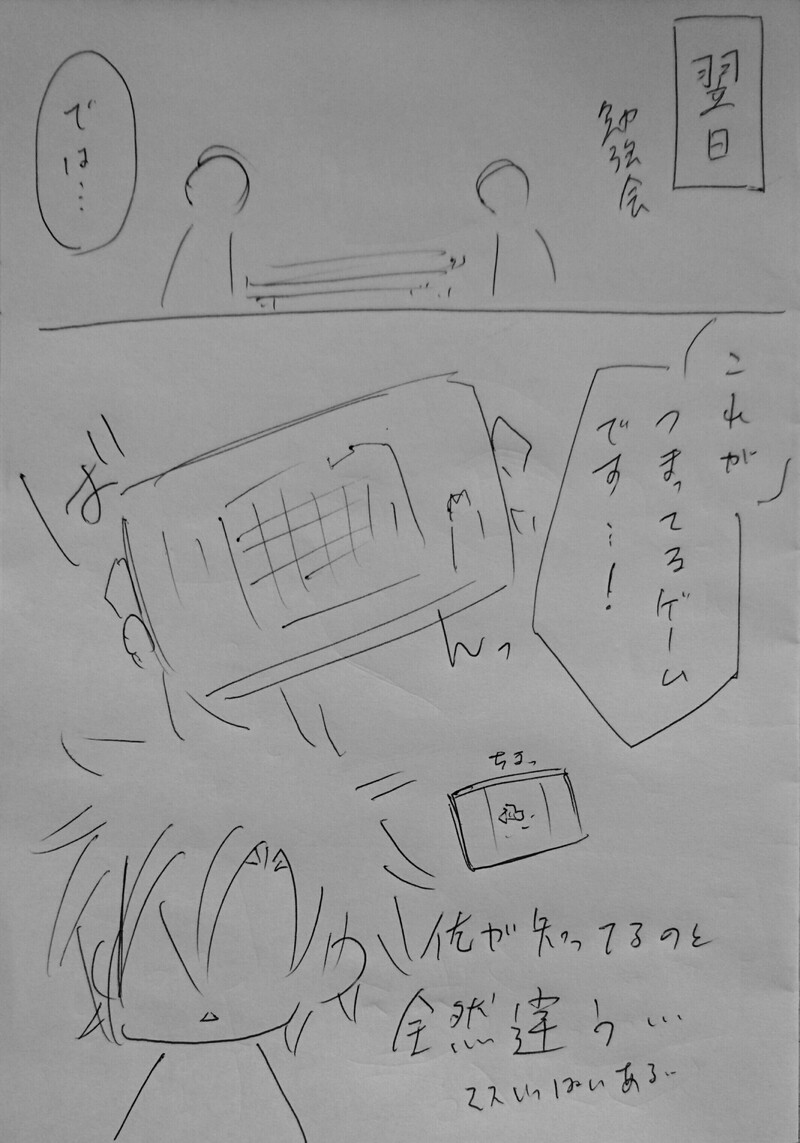 翌日
勉強会
では…
これが
つまってるゲーム
です…!
ばんっ
ちまっ
俺が知ってるのと
全然違う…
マスいっぱいある…